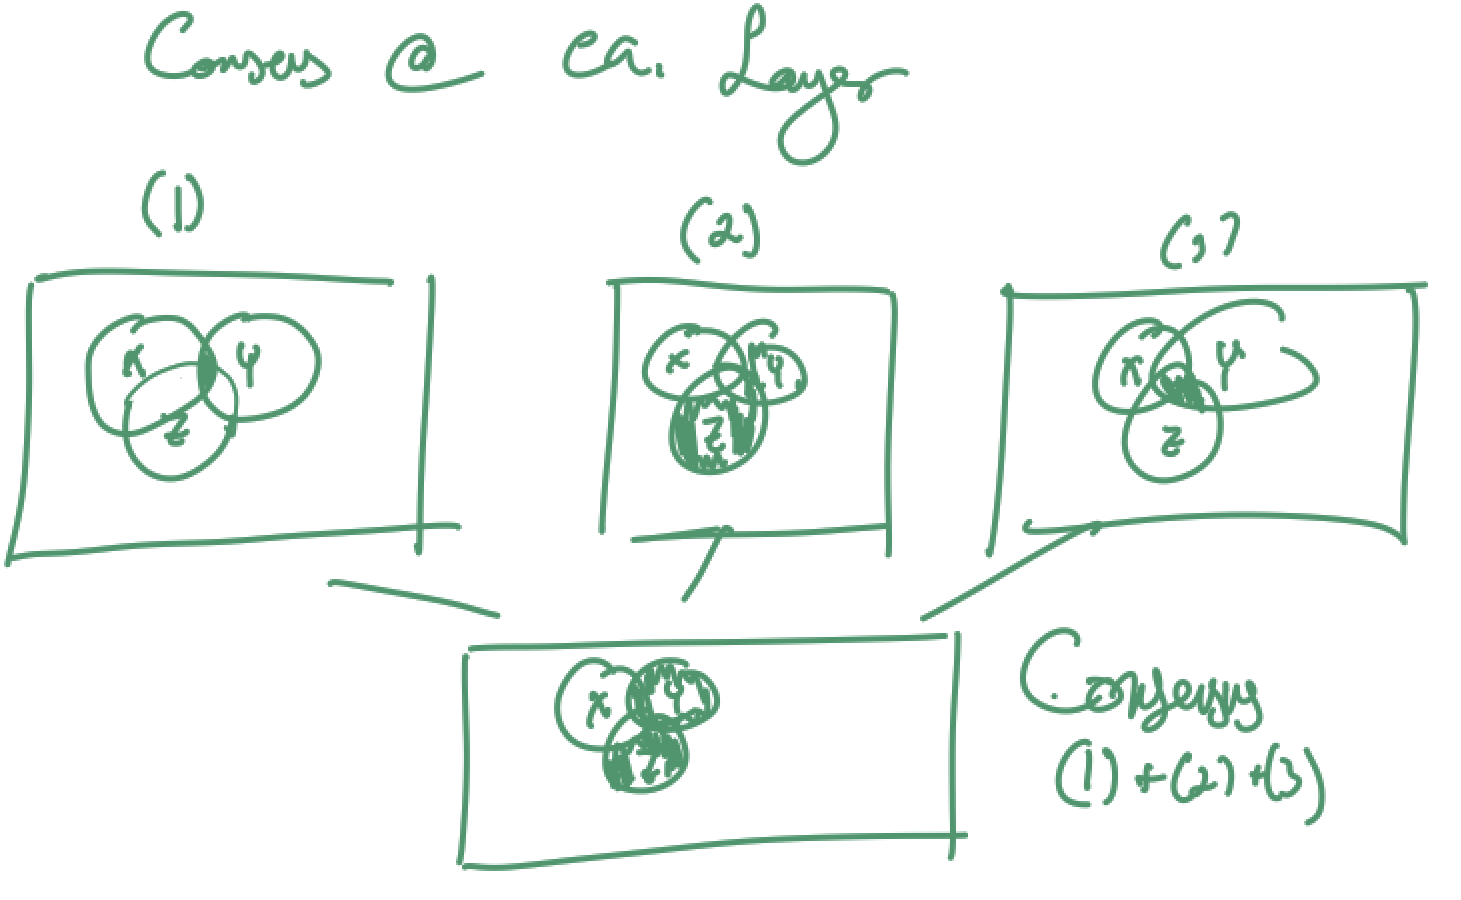 Consensus @ ea. Layer
(1)
(2)
(3)
X Y Z
X Y Z
X Y Z
X Y Z
Consensus
(1) + (2) + (3)